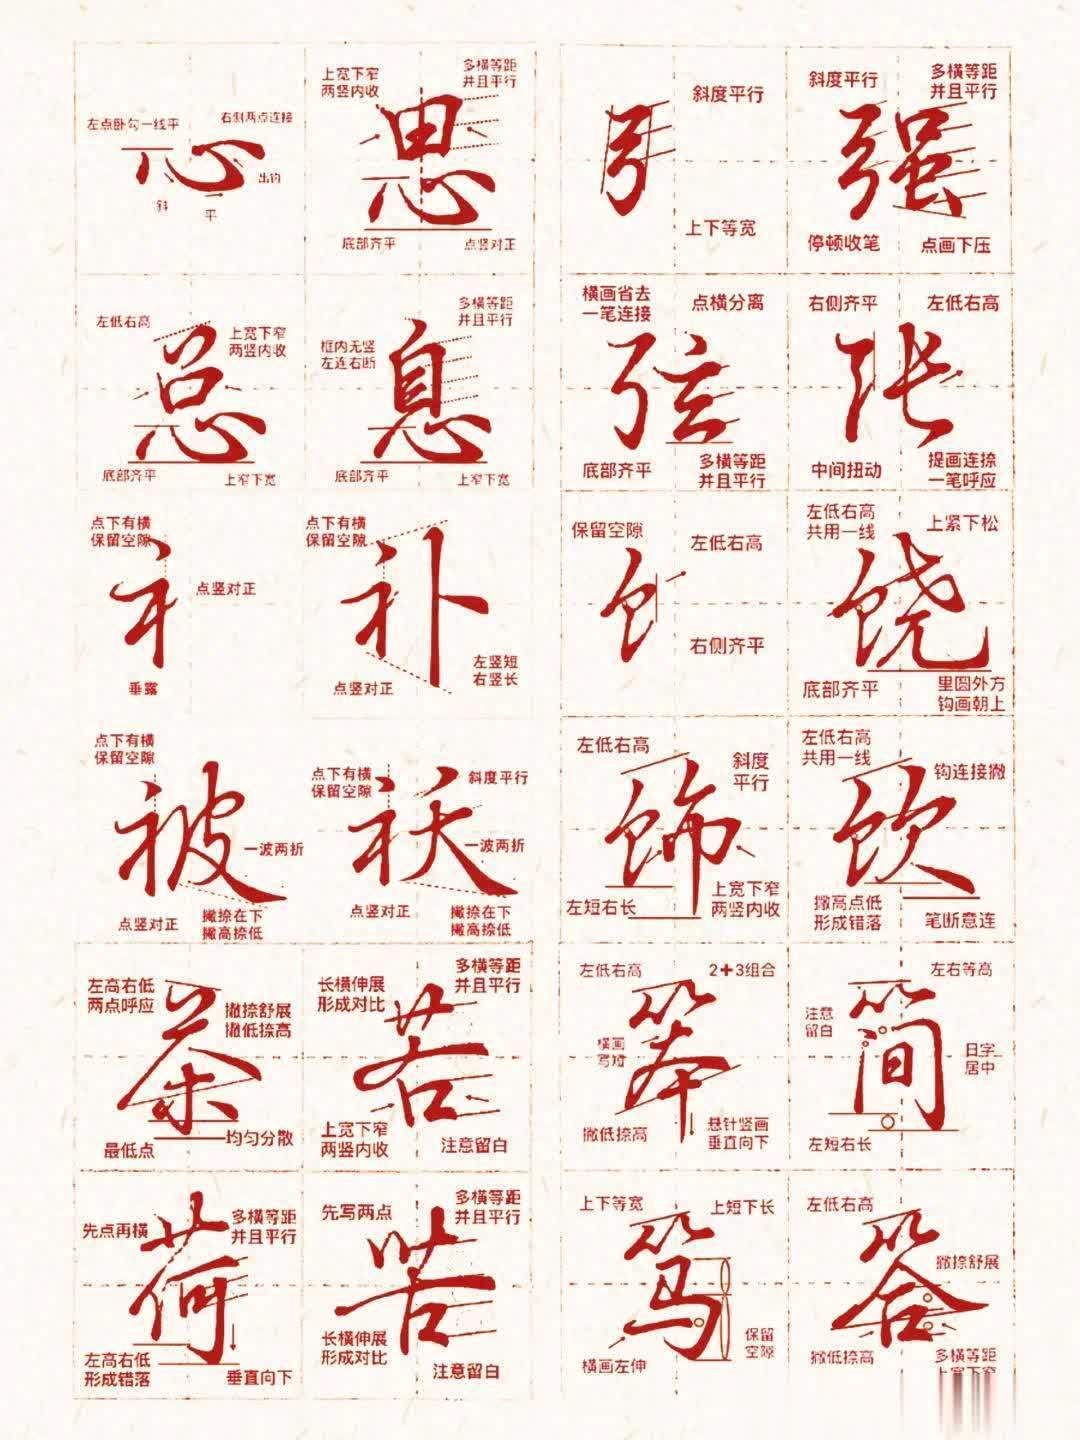 左点卧勾一线平
右侧两点连接
心
出钩
斜
平
上宽下窄
两竖内收
多横等距
并且平行
思
底部齐平
点竖对正
斜度平行
上下等宽
斜度平行
多横等距
并且平行
强
停顿收笔
点画下压
左低右高
上宽下窄
两竖内收
总
底部齐平
上窄下宽
多横等距
并且平行
框内无竖
左连右断
息
底部齐平
上窄下宽
横画省去
一笔连接
点横分离
弦
底部齐平
多横等距
并且平行
右侧齐平
左低右高
张
中间扭动
提画连捺
一笔呼应
点下有横
保留空隙
衤
点竖对正
垂露
点下有横
保留空隙
补
左竖短
右竖长
点竖对正
保留空隙
左低右高
饣
右侧齐平
左低右高
共用一线
上紧下松
饶
底部齐平
里圆外方
钩画朝上
点下有横
保留空隙
被
一波两折
点竖对正
撇捺在下
撇高捺低
点下有横
保留空隙
斜度平行
袄
一波两折
点竖对正
撇捺在下
撇高捺低
左低右高
斜度
平行
饰
左短右长
上宽下窄
两竖内收
左低右高
共用一线
钩连接撇
饮
撇高点低
形成错落
笔断意连
左高右低
两点呼应
撇捺舒展
撇低捺高
茶
最低点
均匀分散
长横伸展
形成对比
多横等距
并且平行
若
上宽下窄
两竖内收
注意留白
左低右高
2+3组合
横画
写短
笨
撇低捺高
悬针竖画
垂直向下
左右等高
注意
留白
简
日字
居中
左短右长
先点再横
多横等距
并且平行
荷
左高右低
形成错落
垂直向下
先写两点
多横等距
并且平行
苦
长横伸展
形成对比
注意留白
上下等宽
上短下长
笃
横画左伸
保留
空隙
左低右高
撇捺舒展
答
撇低捺高
多横等距
上宽下窄